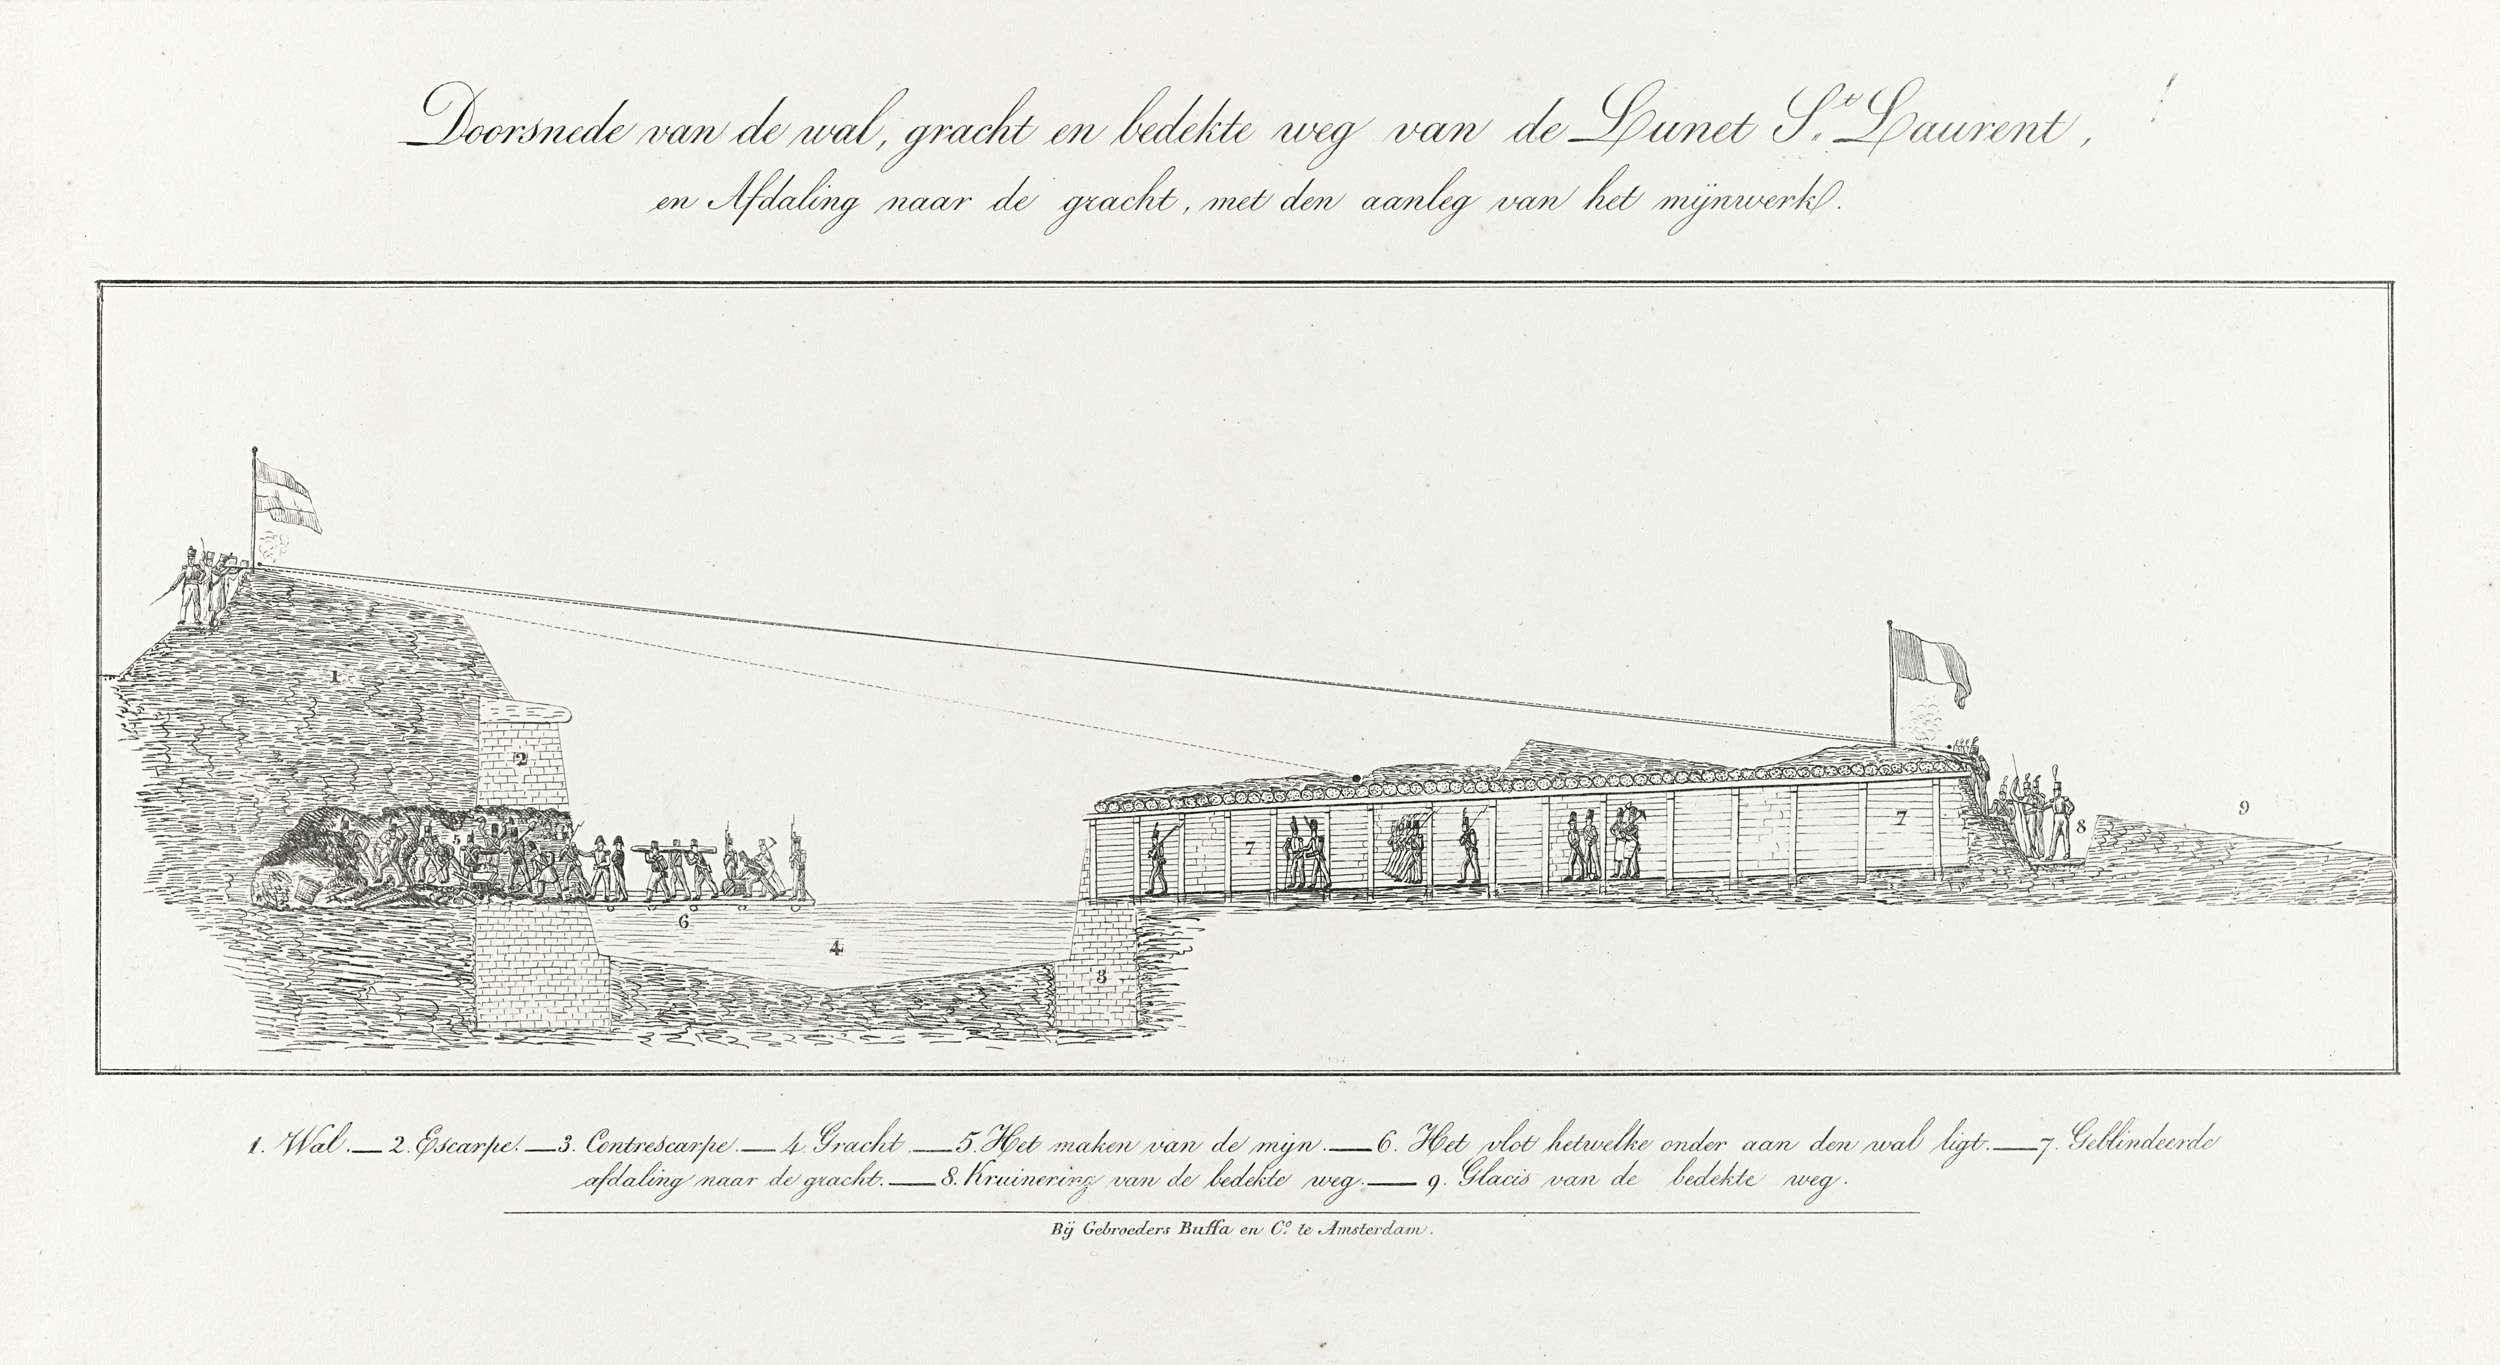 Doorsnede van de wal, gracht en bedekte weg van de Lunet St. Laurent,
en Afdaling naar de gracht, met den aanleg van het mijnwerk.
1
2
5
6
4
3
7
7
8
9
1. Wal. — 2. Escarpe. — 3. Contrescarpe. — 4. Gracht. — 5. Het maken van de mijn. — 6. Het vlot hetwelke onder aan den wal ligt. — 7. Geblindeerde
afdaling naar de gracht. — 8. Kruinering van de bedekte weg. — 9. Glacis van de bedekte weg.
Bij Gebroeders Buffa en Co. te Amsterdam.